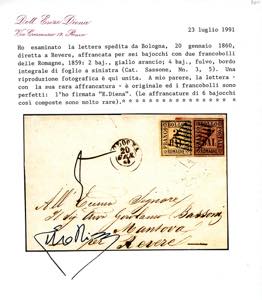 Dott. Enzo Diena
Via Crescenzio 19, Roma
23 luglio 1991
Ho esaminato la lettera spedita da Bologna, 20 gennaio 1860,
diretta a Revere, affrancata per sei bajocchi con due francobolli
delle Romagne, 1859: 2 baj., giallo arancio; 4 baj., fulvo, bordo
integral di foglio a sinistra (Cat. Sassone, Nn. 3, 5). Una
riproduzione fotografica è qui unita. A mio parere, la lettera -
con la sua rara affrancatura - è originale ed i francobolli sono
perfetti: l'ho firmata "E.Diena". (Le affrancature di 6 bajocchi
così composte sono molto rare).
20
GEN
All'
Signore
Il Sig
Mantova
per Revere